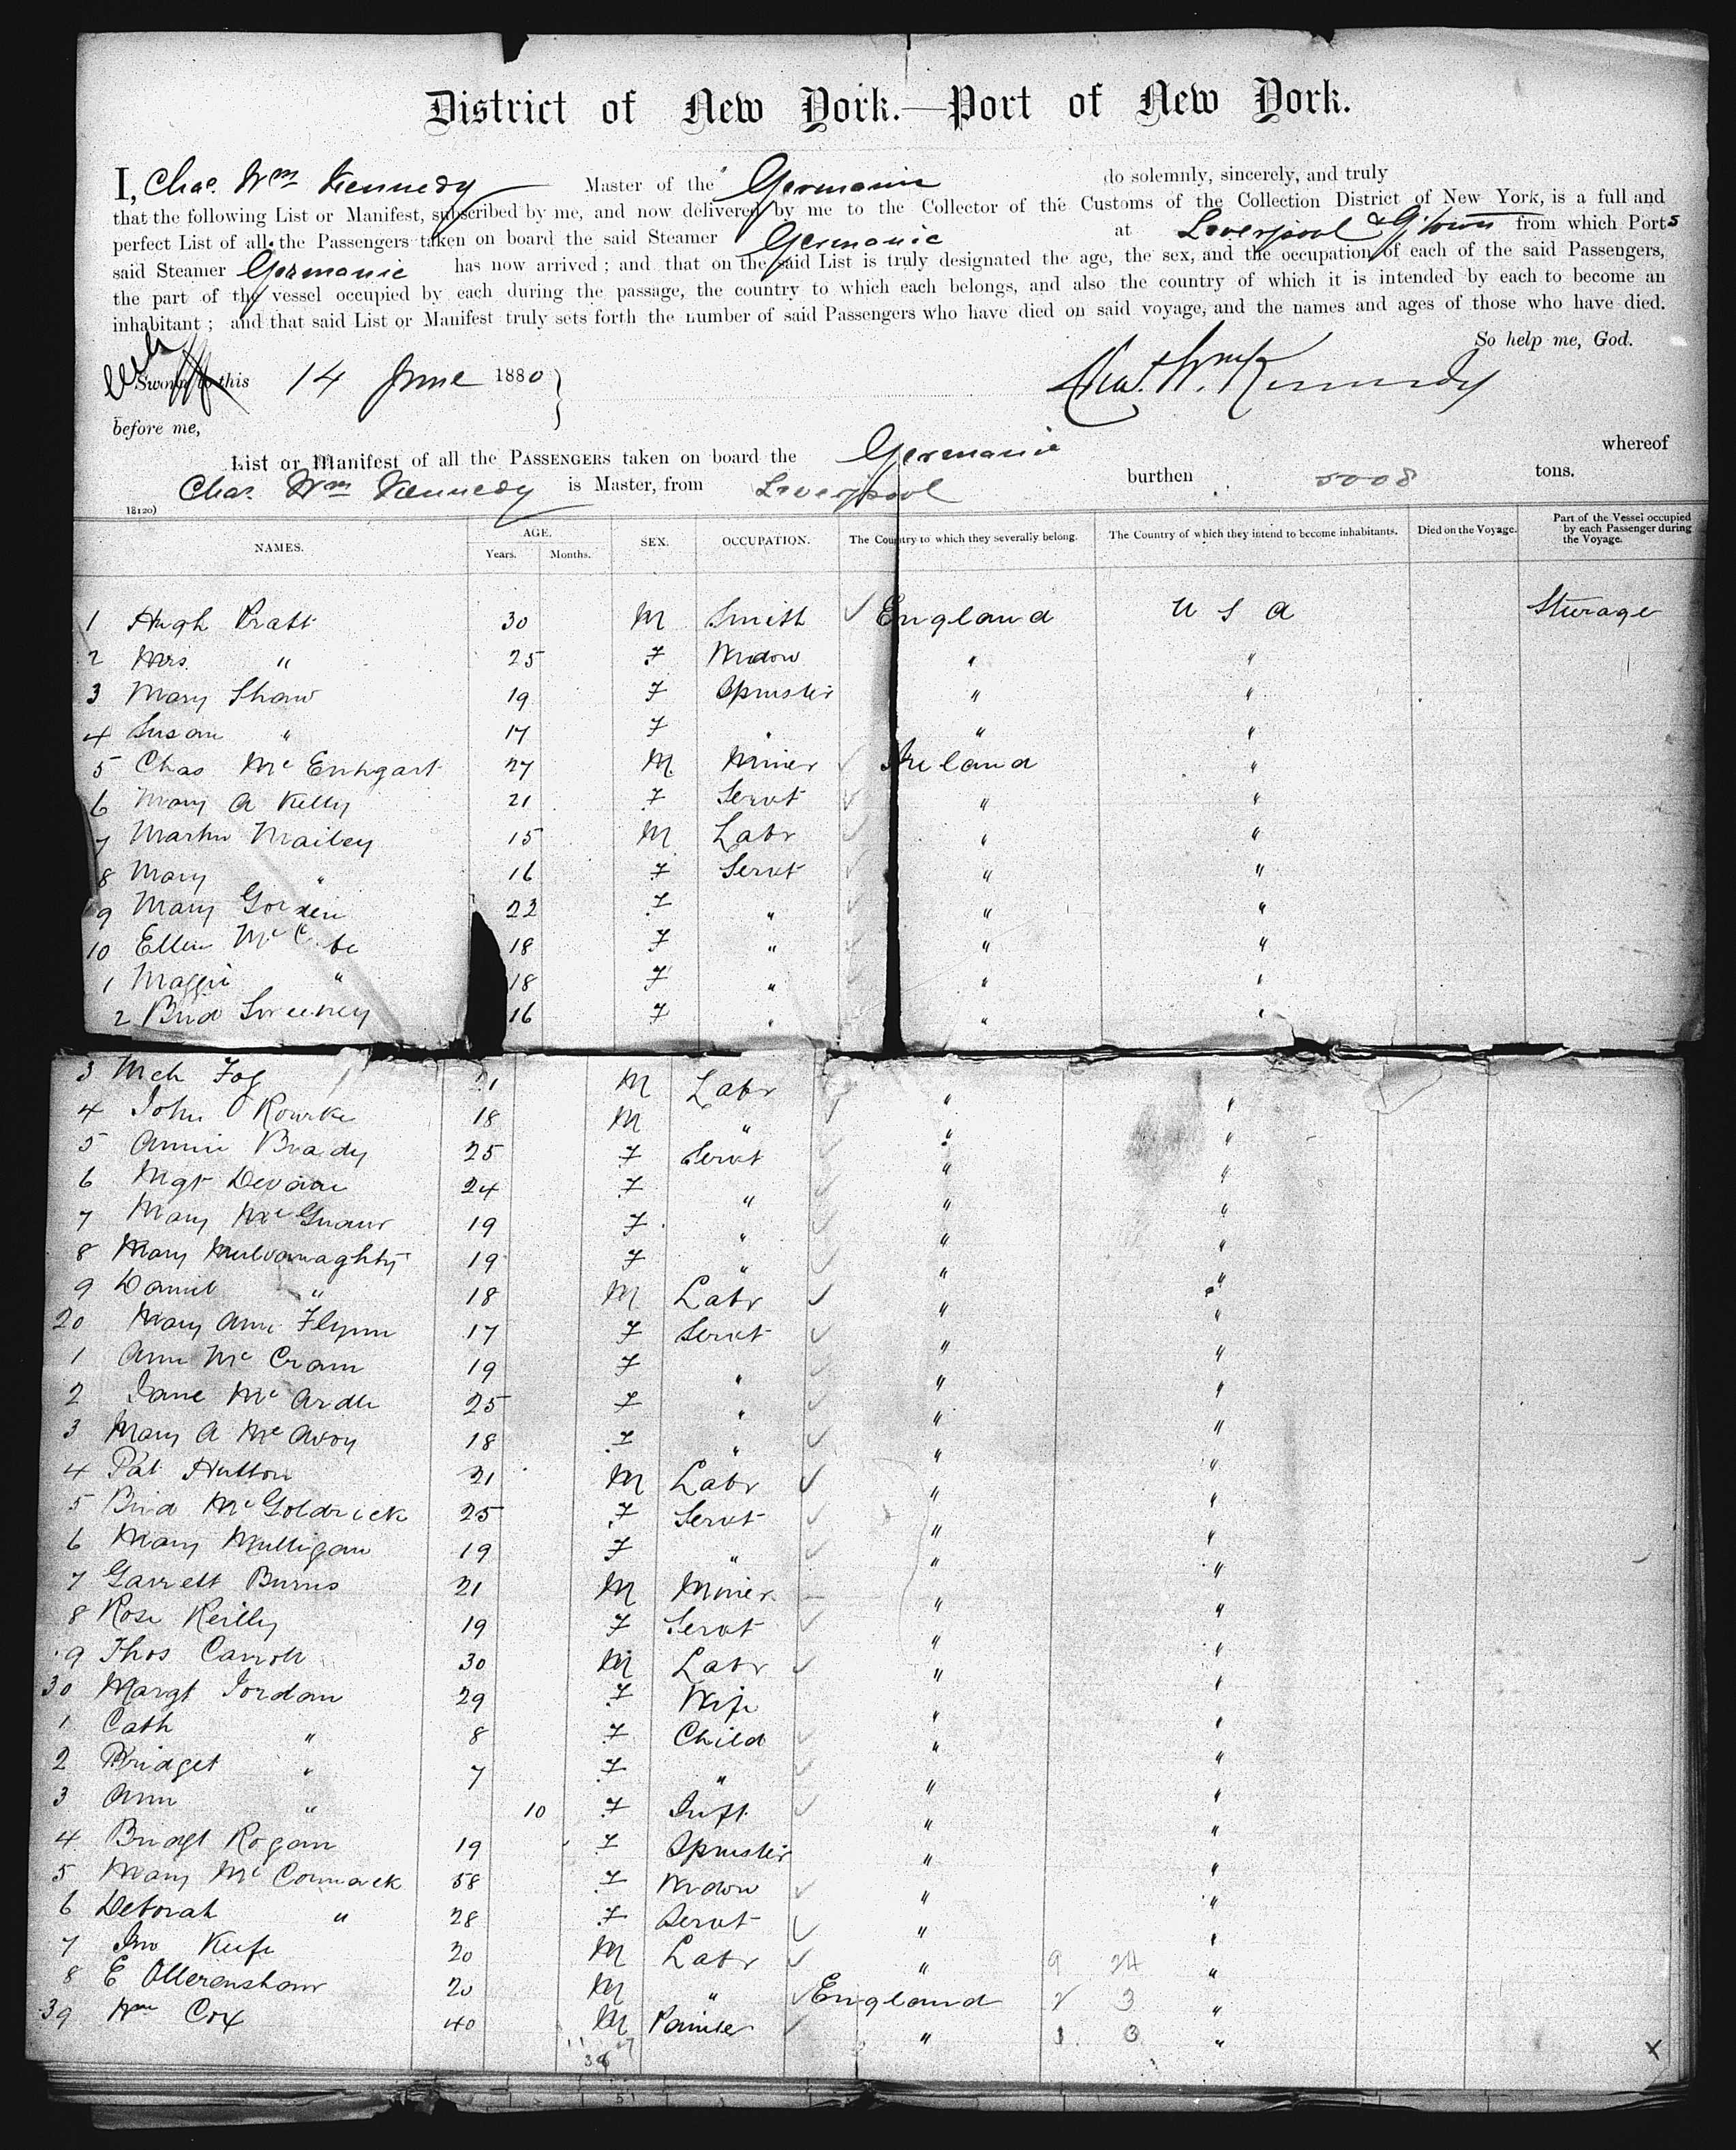 District of New York.—Port of New York.
I, Chas. Wm Kennedy Master of the Germanic do solemnly, sincerely, and truly
that the following List or Manifest, subscribed by me, and now delivered by me to the Collector of the Customs of the Collection District of New York, is a full and
perfect List of all the Passengers taken on board the said Steamer Germanic at Liverpool & Q'town from which Ports
said Steamer Germanic has now arrived; and that on the said List is truly designated the age, the sex, and the occupation of each of the said Passengers,
the part of the vessel occupied by each during the passage, the country to which each belongs, and also the country of which it is intended by each to become an
inhabitant; and that said List or Manifest truly sets forth the number of said Passengers who have died on said voyage, and the names and ages of those who have died.
So help me, God.
Sworn to this 14 June 1880
Chas. Wm Kennedy
before me,
List or Manifest of all the PASSENGERS taken on board the Germanic whereof
Chas. Wm Kennedy is Master, from Liverpool burthen 5008 tons.
18120)
NAMES. AGE. Years. Months. SEX. OCCUPATION. The Country to which they severally belong. The Country of which they intend to become inhabitants. Died on the Voyage. Part of the Vessel occupied by each Passenger during the Voyage.
1 Hugh Pratt 30 M Smith ✓ England U S A Steerage
2 Mrs " 25 F Widow " "
3 Mary Shaw 19 F Spinster " "
4 Susan " 17 F " " "
5 Chas 27 M Miner ✓ Ireland "
6 Mary A Kelly 21 F Servt ✓ " "
7 Martin Mailey 15 M Labr ✓ " "
8 Mary " 16 F Servt ✓ " "
9 Mary 22 F " ✓ " "
10 Ellen 18 F " ✓ " "
1 Maggie " 18 F " ✓ " "
2 Brid Sweeney 16 F " " "
3 Mch 21 M Labr ✓ " "
4 John O Rourke 18 M " ✓ " "
5 Annie Brady 25 F Servt ✓ " "
6 Mgt Devane 24 F " ✓ " "
7 Mary 19 F " ✓ " "
8 Mary 19 F " ✓ " "
9 Daniel " 18 M Labr ✓ " "
20 Mary Ann Flynn 17 F Servt ✓ " "
1 Ann Mc Crann 19 F " ✓ " "
2 Jane Mc Ardle 25 F " ✓ " "
3 Mary A Mc Avoy 18 F " ✓ " "
4 Pat Hutton 21 M Labr ✓ " "
5 Brid McGoldrick 25 F Servt ✓ " "
6 Mary Mulligan 19 F " ✓ " "
7 Garrett Burns 21 M Miner " "
8 Rose Reilly 19 F Servt ✓ " "
9 Thos Carroll 30 M Labr ✓ " "
30 Margt Jordan 29 F Wife " "
1 Cath " 8 F Child ✓ " "
2 Bridget " 7 F " ✓ " "
3 Ann " 10 F Inft ✓ " "
4 Bridgt Rogan 19 F Spinster " "
5 Mary McCormack 58 F Widow ✓ " "
6 Deborah " 28 F Servt ✓ " "
7 Jno Keefe 20 M Labr ✓ " 9 24 "
8 E Ollerenshaw 20 M " ✓ England 2 3 "
39 Wm Cox 40 M Painter ✓ " 1 0 "
x